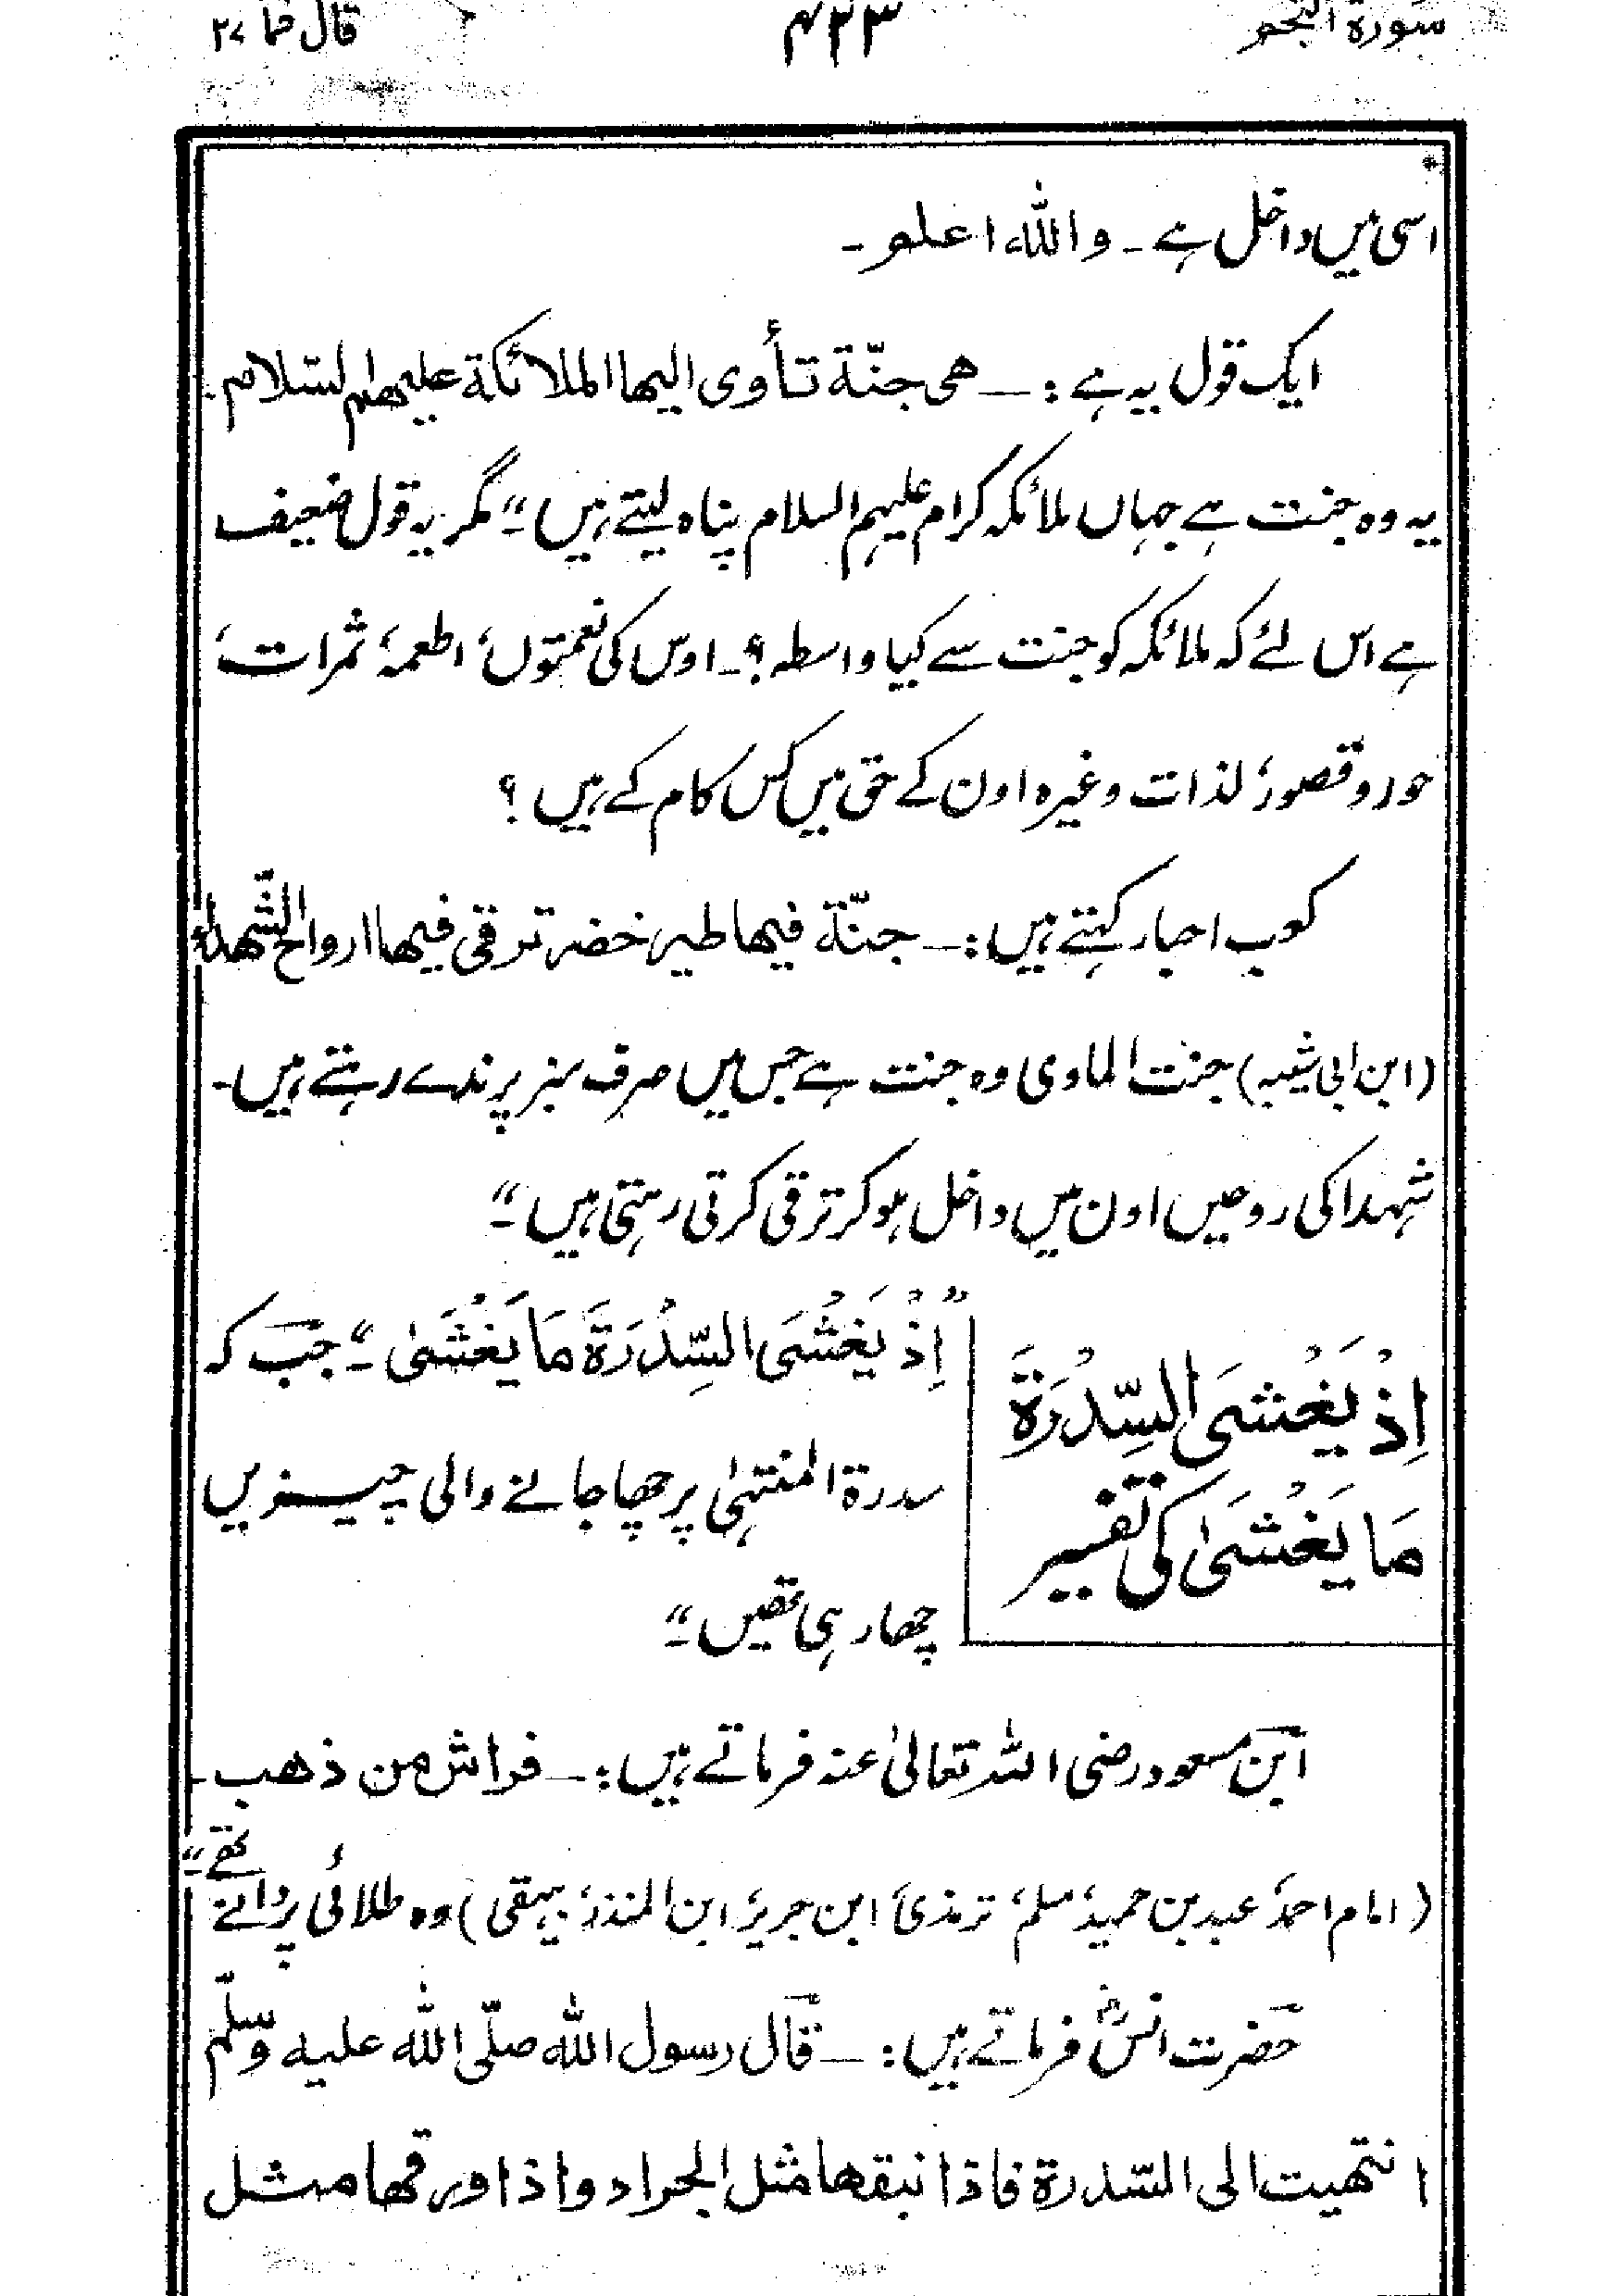 سورۃ النجم
۴۳۳
قال فما ۲۷
اسی میں داخل ہے ۔ واللہ اعلم ۔
ایک قول یہ ہے :۔ ھی جنّة تأوی الیھا الملائکة علیھم السّلام ۔
یہ وہ جنت ہے جہاں ملائکہ کرام علیہم السلام پناہ لیتے ہیں ۔“ مگر یہ قول ضعیف
ہے اس لئے کہ ملائکہ کو جنت سے کیا واسطہ ؟ ۔ اوس کی نعمتوں، اطعمہ، ثمرات،
حور و قصور، لذات وغیرہ اون کے حق میں کس کام کے ہیں ؟
کعب احبار کہتے ہیں :۔ جنّة فیھا طیر خضر ترقی فیھا ارواح الشّھداء
(ابن ابی شیبہ) جنت الماوی وہ جنت ہے جس میں صرف سبز پرندے رہتے ہیں ۔
شہدا کی روحیں اون میں داخل ہو کر ترقی کرتی رہتی ہیں ۔“
اِذْ يَغْشَى السِّدْرَةَ
مَا يَغْشَىٰ کی تفسیر
”اِذْ يَغْشَى السِّدْرَةَ مَا يَغْشَىٰ ۔“ جب کہ
سدرۃ المنتہیٰ پر چھا جانے والی چیزیں
چھا رہی تھیں ۔“
ابن مسعود رضی اللہ تعالیٰ عنہ فرماتے ہیں :۔ فراش من ذھب ۔
(امام احمد، عبد بن حمید، مسلم، ترمذی، ابن جریر، ابن المنذر، بیہقی) وہ طلائی پروانے تھے ۔“
حضرت انسؓ فرماتے ہیں :۔ قال رسول اللہ صلّی اللہ علیہ وسلّم
انتھیت الی السّدرة فاذا نبقھا مثل الجراد واذا ورقھا مثل